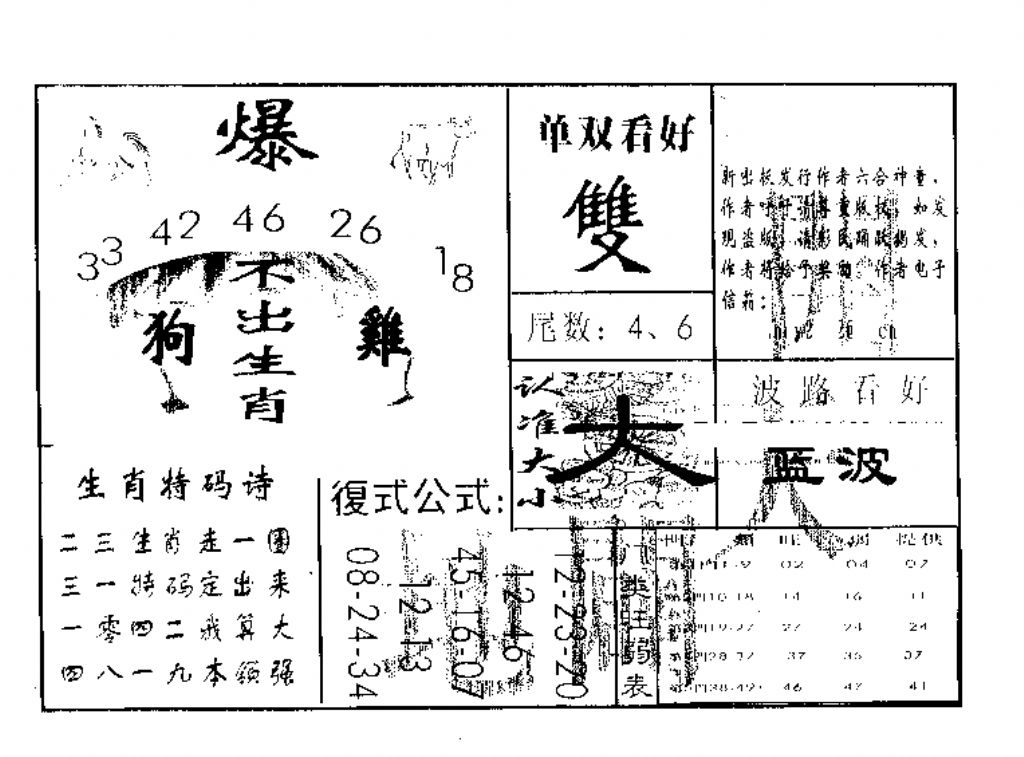 爆
33 42 46 26 18
不出生肖
狗
雞
单双看好
雙
尾数：4、6
新出板发行作者六合神童，
作者呼吁请尊重版权，如发
现盗版，请彩民踊跃揭发，
作者将给予奖励，作者电子
信箱：
认准大小
大
波路看好
蓝波
生肖特码诗
二三生肖走一圈
三一特码定出来
一零四二我算大
四八一九本领强
復式公式：
08-24-34
12-13
45-16-07
12-46
12-23-20
门类旺弱表
提供
02 04 07
14 16 11
27 24 24
37 35 37
46 47 41